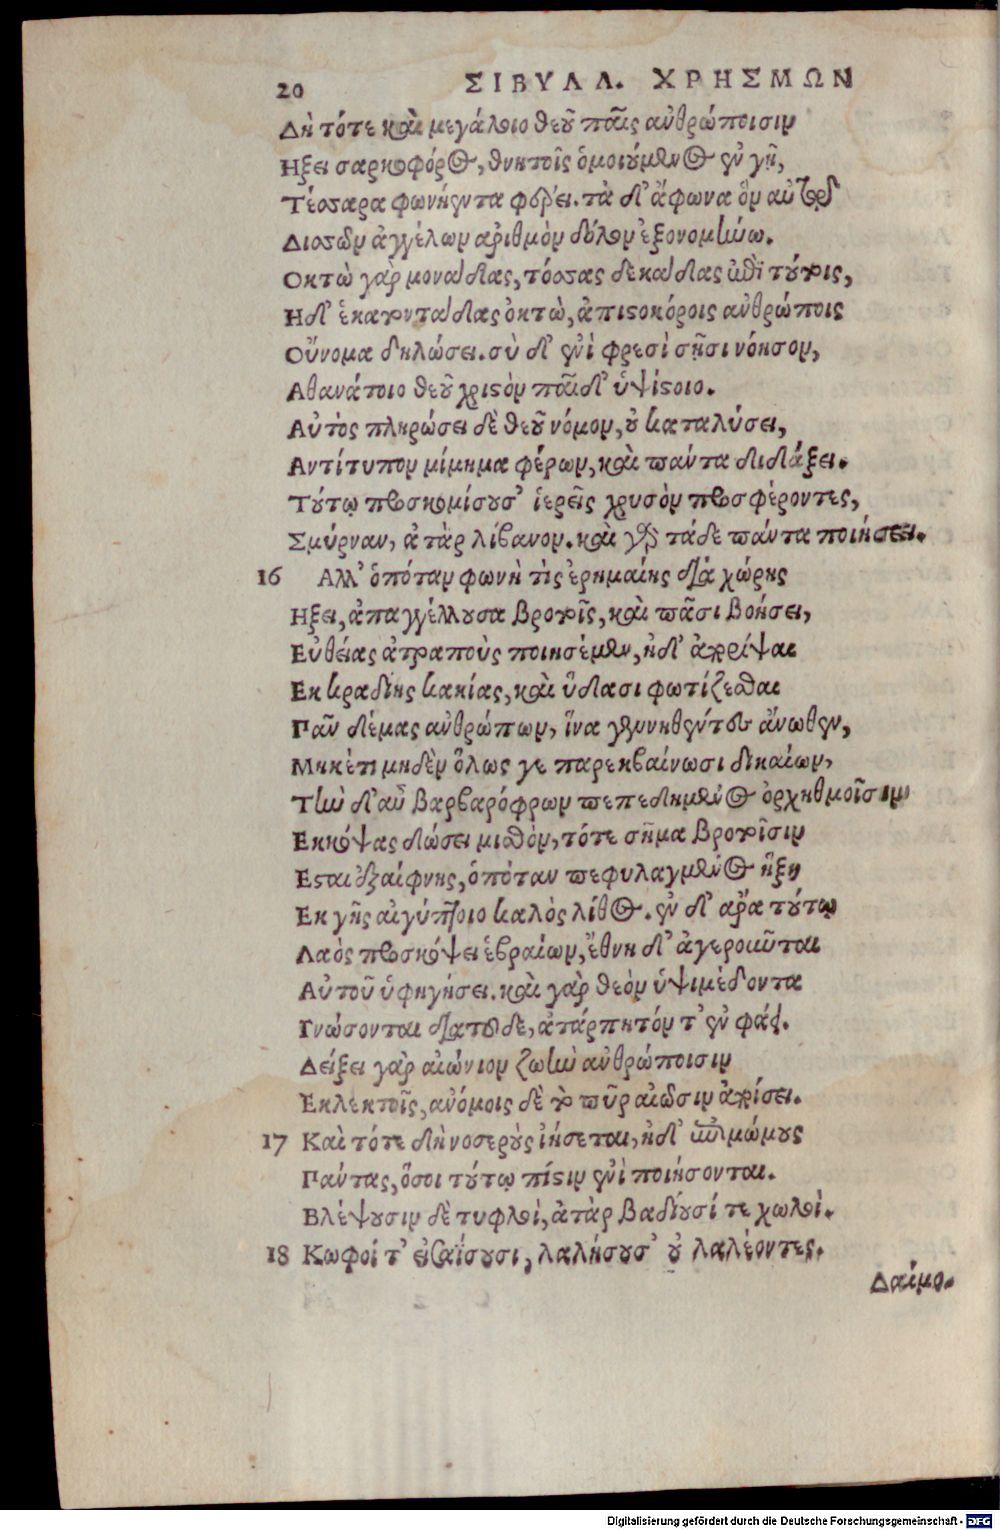 20 ΣΙΒΥΛΛ. ΧΡΗΣΜΩΝ
Δὴ τότε καὶ μεγάλοιο θεοῦ παῖς ἀνθρώποισιν
Ηξει σαρκοφόρος, θνητοῖς ὁμοιούμενος ἐν γῇ,
Τέσσαρα φωνήεντα φέρει. τὰ δ' ἄφωνα
Δισσῶν ἀγγέλων ἀριθμὸν δ' ὅλον ἐξονομήνω.
Οκτὼ γὰρ μονάδας, τόσσας δεκάδας ἐπὶ τούτοις,
Ηδ' ἑκατοντάδας ὀκτὼ, ἀπιστοκόροις ἀνθρώποις
Οὔνομα δηλώσει. σὺ δ' ἐνὶ φρεσὶ σῇσι νόησον,
Αθανάτοιο θεοῦ χριστὸν παῖδ' ὑψίστοιο.
Αὐτὸς πληρώσει δὲ θεοῦ νόμον, οὐ καταλύσει,
Αντίτυπον μίμημα φέρων, καὶ πάντα διδάξει.
Τούτῳ προσκομίσουσ' ἱερεῖς χρυσὸν προσφέροντες,
Σμύρναν, ἀτὰρ λίβανον. καὶ γὰρ τάδε πάντα ποιήσει.
16 Αλλ' ὁπόταν φωνὴ τὶς ἐρημαίης διὰ χώρης
Ηξει, ἀπαγγέλλουσα βροτοῖς, καὶ πᾶσι βοήσει,
Εὐθείας ἀτραποὺς ποιησέμεν, ἠδ' ἀπορρίψαι
Εκ κραδίης κακίας, καὶ ὕδασι φωτίζεσθαι
Πᾶν δέμας ἀνθρώπων, ἵνα γεννηθέντες ἄνωθεν,
Μηκέτι μηδὲν ὅλως γε παρεκβαίνωσι δικαίων,
Τὴν δ' αὖ βαρβαρόφρων πεπεδημένος ὀρχηθμοῖσιν
Εκκόψας δώσει μισθὸν, τότε σῆμα βροτοῖσιν
Εσται ἐξαίφνης, ὁπόταν πεφυλαγμένος ἥξῃ
Εκ γῆς αἰγύπτοιο καλὸς λίθος. ἐν δ' ἄρα τούτῳ
Λαὸς προσκόψει ἑβραίων, ἔθνη δ' ἀγεροῦνται
Αὐτοῦ ὑφηγήσει. καὶ γὰρ θεὸν ὑψιμέδοντα
Γνώσονται διὰ τοῦδε, ἀτάρπητόν τ' ἐν φάει.
Δείξει γὰρ αἰώνιον ζωὴν ἀνθρώποισιν
Εκλεκτοῖς, ἀνόμοις δὲ τὸ πῦρ αἰῶσιν ἀποίσει.
17 Καὶ τότε δὴ νοσεροὺς ἰήσεται, ἠδ' ἐπιμώμους
Πάντας, ὅσοι τούτῳ πίστιν ἐνὶ ποιήσονται.
Βλέψουσιν δὲ τυφλοὶ, ἀτὰρ βαδίουσί τε χωλοὶ.
18 Κωφοί τ' εἰσαΐσουσι, λαλήσουσ' οὐ λαλέοντες.
Δαίμο.
Digitalisierung gefördert durch die Deutsche Forschungsgemeinschaft - DFG